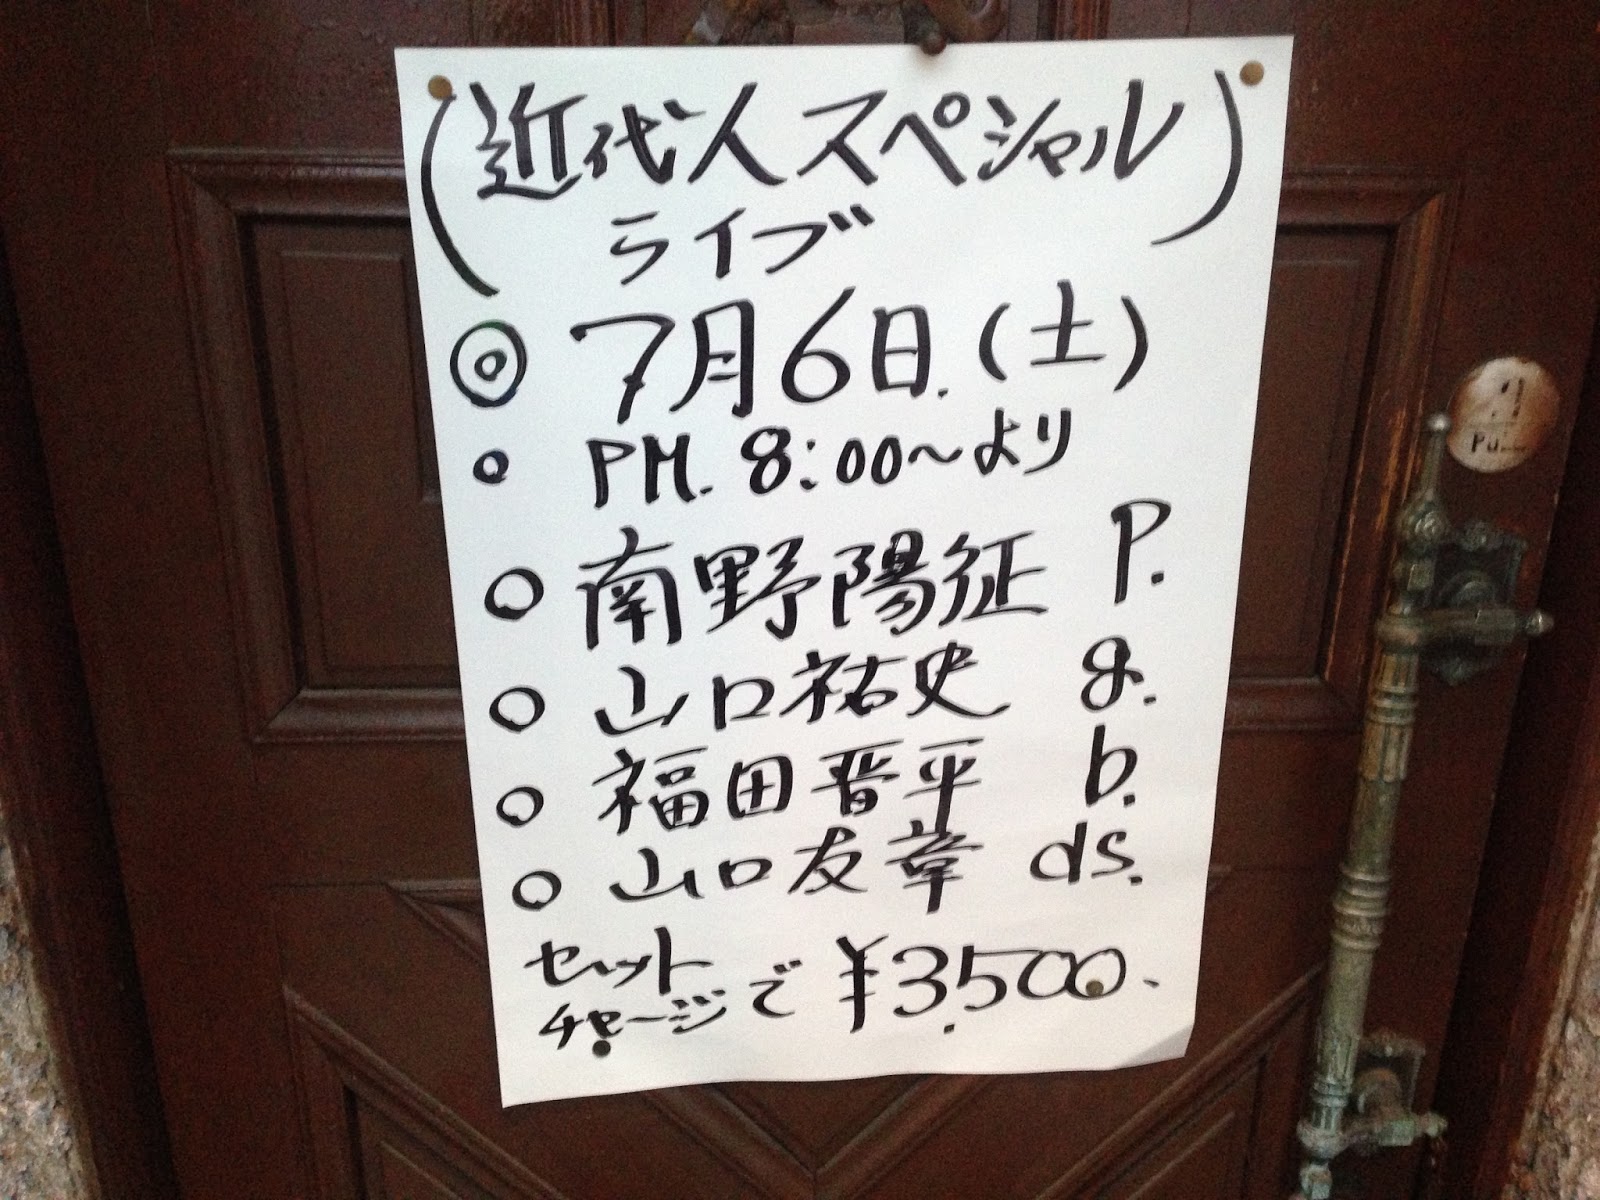 (近代人スペシャル)
ライブ
◎ 7月6日.(土)
○ PM. 8:00～より
○ 南野陽征 P.
○ 山口祐史 g.
○ 福田晋平 b.
○ 山口友章 ds.
セット
チャージで ¥3.500.
Pu